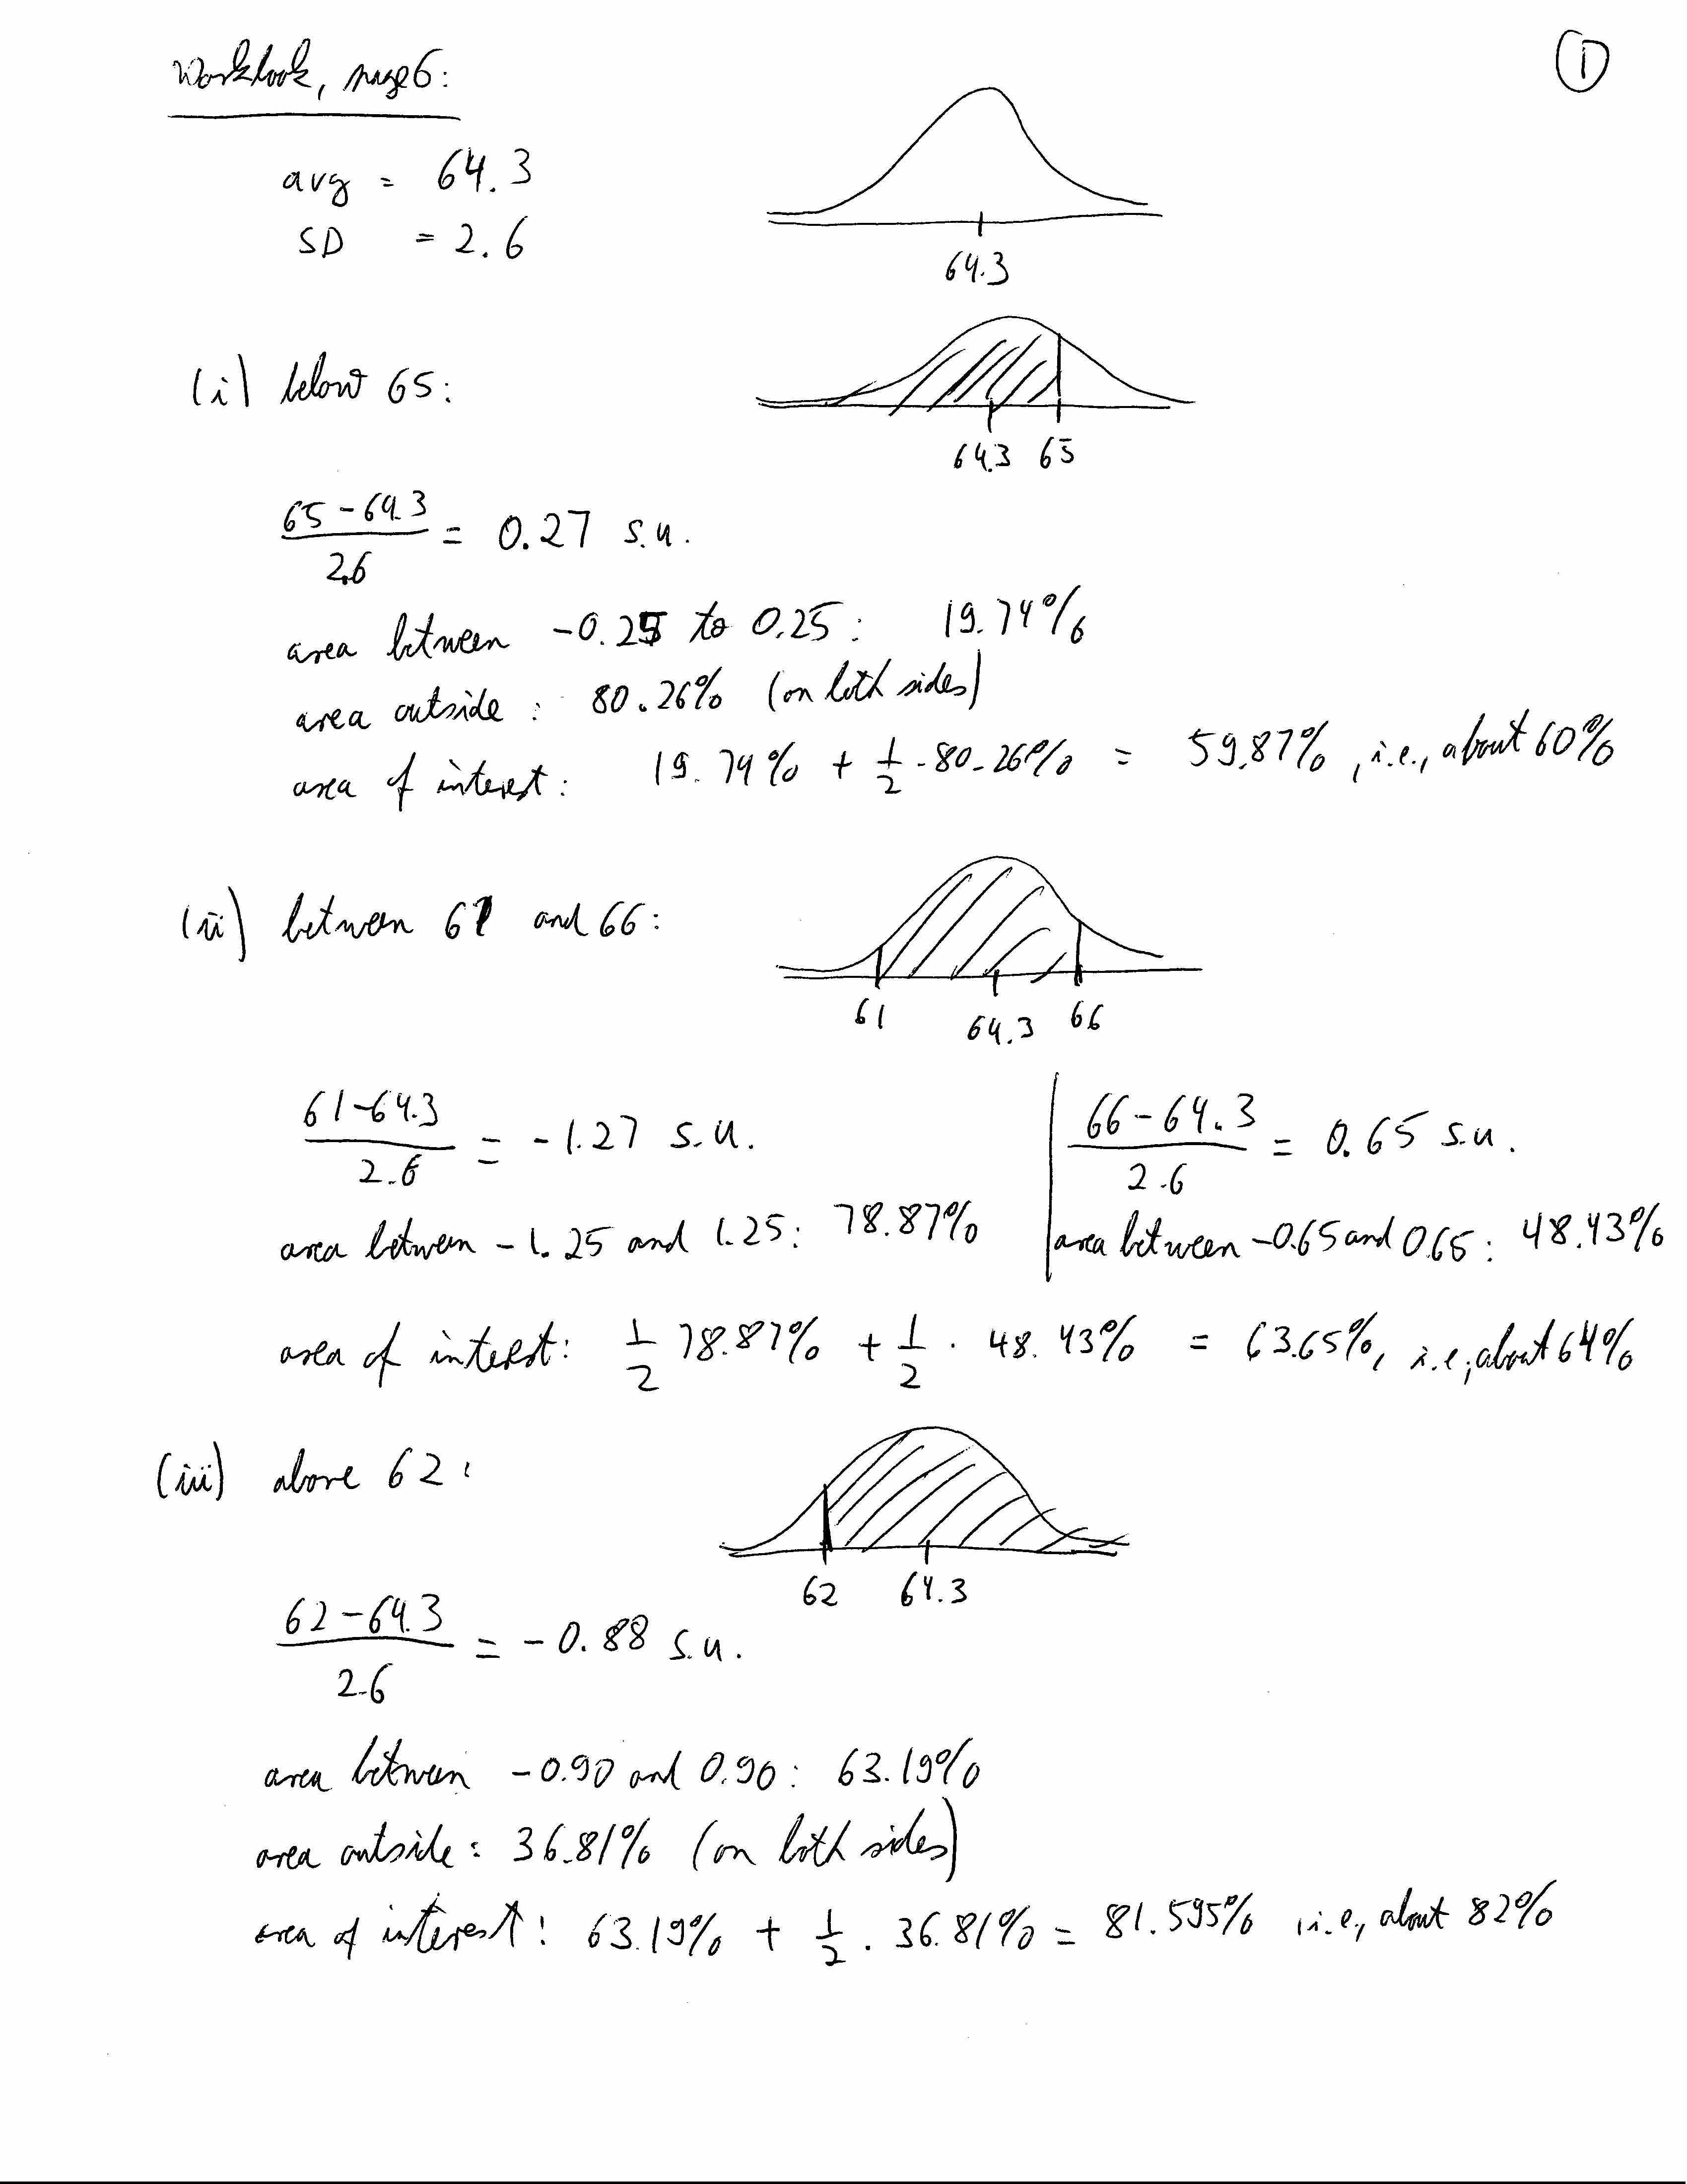 Workbook, page 6:
①
avg = 64.3
SD = 2.6
64.3
(i) below 65:
64.3 65
65-64.3
2.6
= 0.27 s.u.
area between -0.25 to 0.25: 19.74%
area outside: 80.26% (on both sides)
area of interest: 19.74% + 1/2 · 80.26% = 59.87%, i.e., about 60%
(ii) between 61 and 66:
61 64.3 66
61-64.3
2.6
= -1.27 s.u.
66-64.3
2.6
= 0.65 s.u.
area between -1.25 and 1.25: 78.87%
area between -0.65 and 0.65: 48.43%
area of interest: 1/2 78.87% + 1/2 · 48.43% = 63.65%, i.e., about 64%
(iii) above 62:
62 64.3
62-64.3
2.6
= -0.88 s.u.
area between -0.90 and 0.90: 63.19%
area outside: 36.81% (on both sides)
area of interest: 63.19% + 1/2 · 36.81% = 81.595% i.e., about 82%